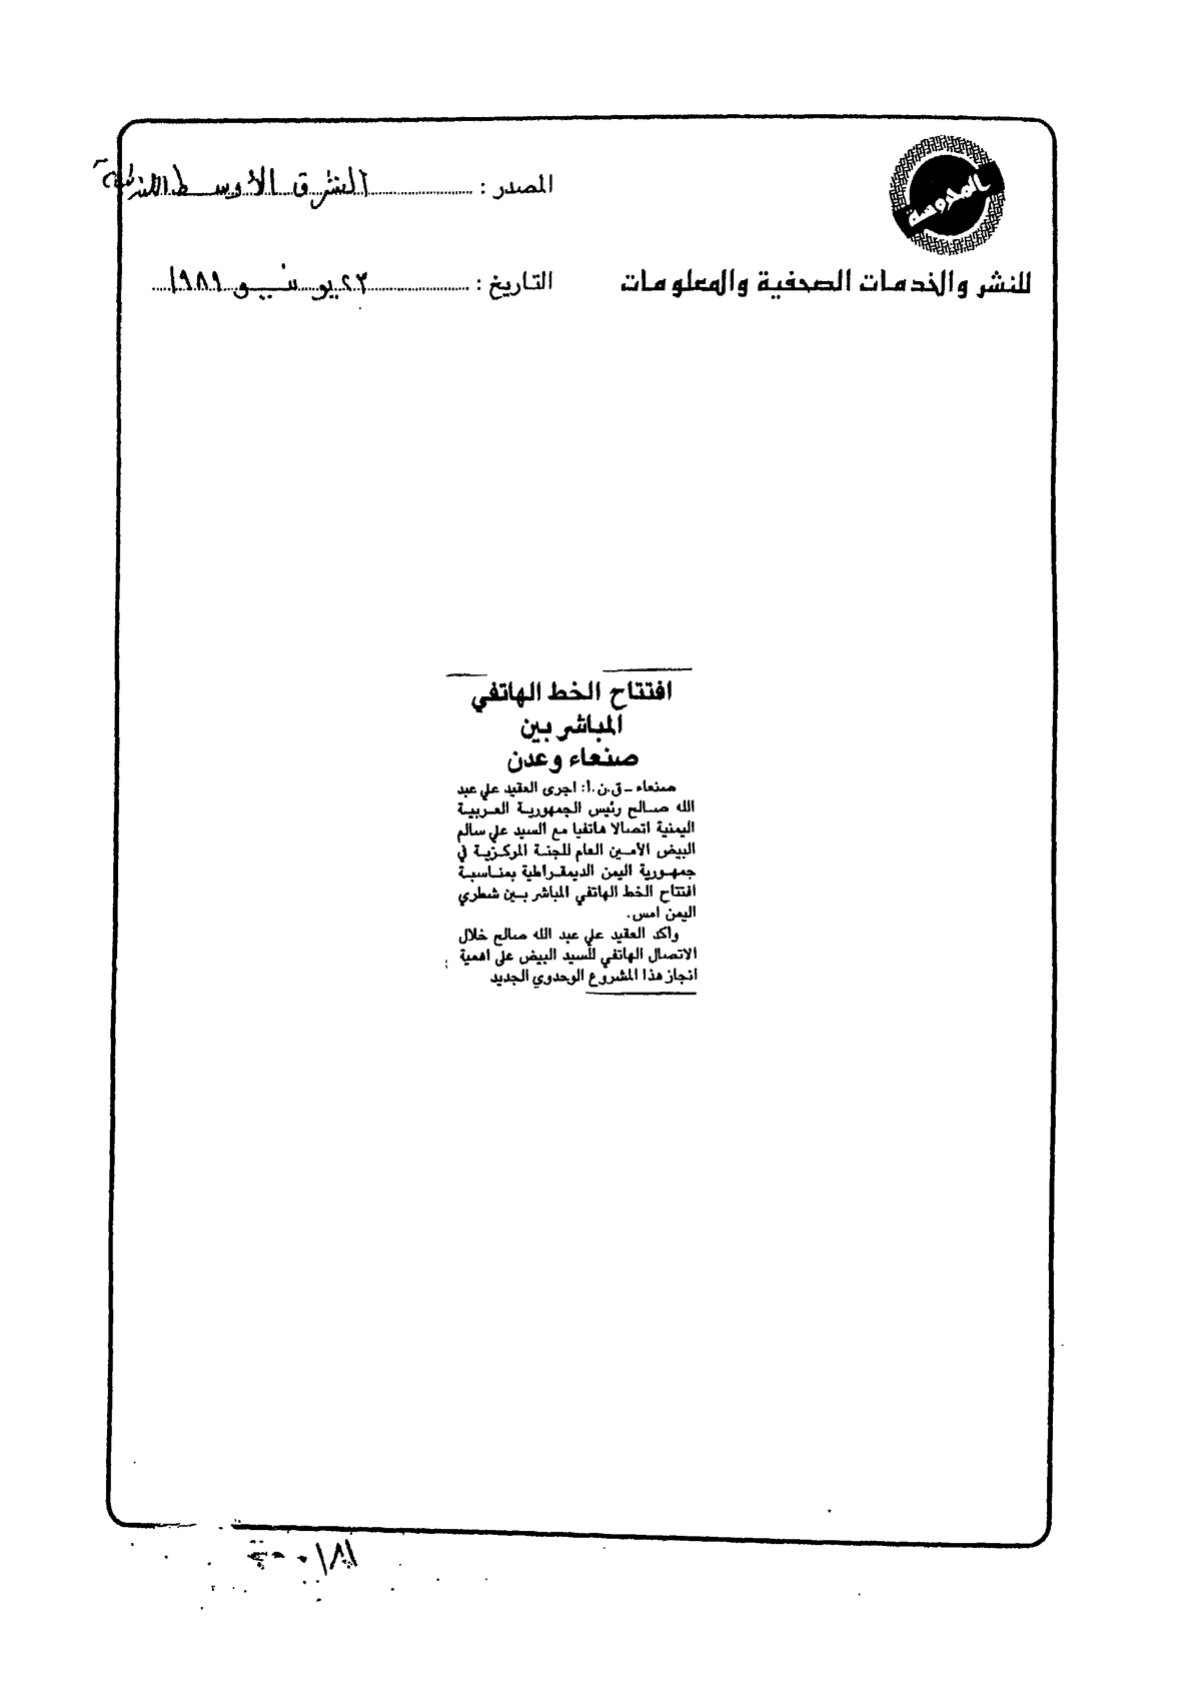 المحروسة
المصدر : الشرق الأوسط اللندنية
للنشر والخدمات الصحفية والمعلومات
التاريخ : ٢٣ يونيو ١٩٨٩
افتتاح الخط الهاتفي
المباشر بين
صنعاء وعدن
صنعاء - ق.ن.أ: اجرى العقيد علي عبد
الله صالح رئيس الجمهورية العربية
اليمنية اتصالا هاتفيا مع السيد علي سالم
البيض الأمين العام للجنة المركزية في
جمهورية اليمن الديمقراطية بمناسبة
افتتاح الخط الهاتفي المباشر بين شطري
اليمن امس.
واكد العقيد علي عبد الله صالح خلال
الاتصال الهاتفي للسيد البيض على اهمية
انجاز هذا المشروع الوحدوي الجديد